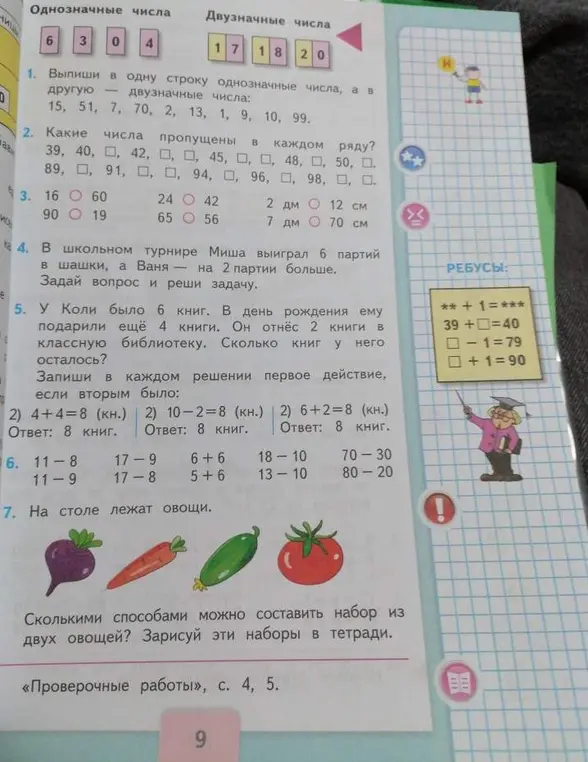 Однозначные числа
Двузначные числа
6 3 0 4
17 18 20
1. Выпиши в одну строку однозначные числа, а в
другую — двузначные числа:
15, 51, 7, 70, 2, 13, 1, 9, 10, 99.
2. Какие числа пропущены в каждом ряду?
39, 40, □, 42, □, □, 45, □, □, 48, □, 50, □.
89, □, 91, □, □, 94, □, 96, □, 98, □, □.
3. 16 ○ 60 24 ○ 42 2 дм ○ 12 см
90 ○ 19 65 ○ 56 7 дм ○ 70 см
4. В школьном турнире Миша выиграл 6 партий
в шашки, а Ваня — на 2 партии больше.
Задай вопрос и реши задачу.
5. У Коли было 6 книг. В день рождения ему
подарили ещё 4 книги. Он отнёс 2 книги в
классную библиотеку. Сколько книг у него
осталось?
Запиши в каждом решении первое действие,
если вторым было:
2) 4+4=8 (кн.) 2) 10−2=8 (кн.) 2) 6+2=8 (кн.)
Ответ: 8 книг. Ответ: 8 книг. Ответ: 8 книг.
6. 11−8 17−9 6+6 18−10 70−30
11−9 17−8 5+6 13−10 80−20
7. На столе лежат овощи.
Сколькими способами можно составить набор из
двух овощей? Зарисуй эти наборы в тетради.
«Проверочные работы», с. 4, 5.
9
РЕБУСЫ:
** + 1=***
39 +□=40
□ − 1=79
□ + 1=90